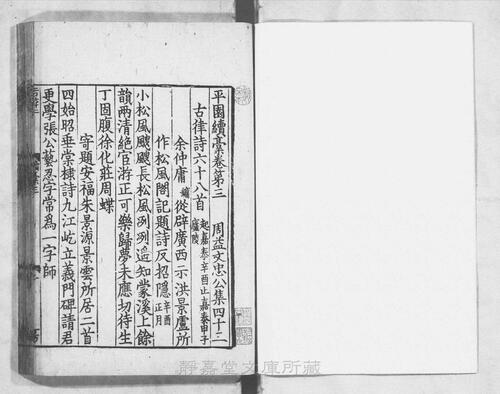 平園續藁卷第三　周益文忠公集四十三
古律詩六十八首 起嘉泰辛酉止嘉泰甲子廬陵
余仲庸 鏞 從辟廣西示洪景盧所
作松風閣記題詩反招隱 辛酉正月
小松風颼颼長松風冽冽遥知蒙溪上餘
韻兩清絶官游正可樂歸夢未應切待生
丁固腹徐化莊周蝶
寄題安福朱景源景雲所居二首
四始昭垂棠棣詩九江屹立義門碑請君
更學張公藝忍字常爲一字師
靜嘉堂文庫所藏